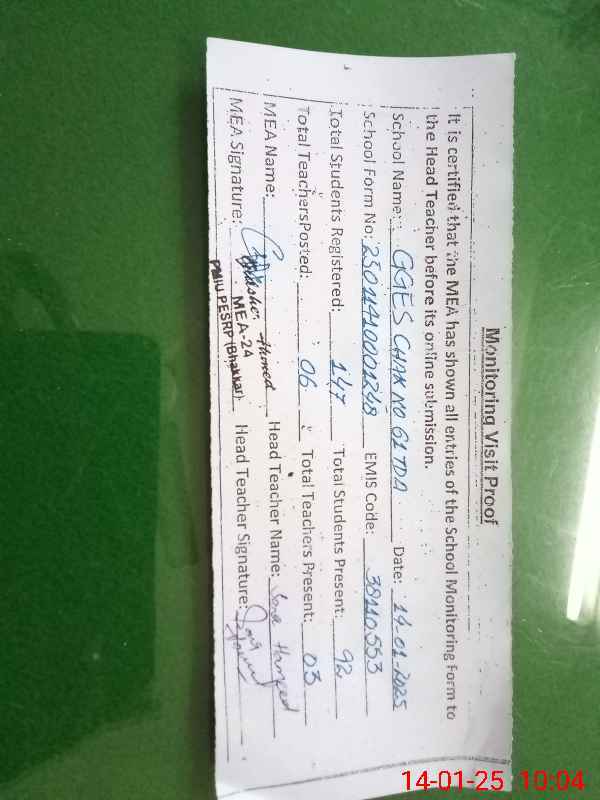 Monitoring Visit Proof
It is certified that the MEA has shown all entries of the School Monitoring Form to
the Head Teacher before its online submission.
School Name: GGES CHAK NO 61 TDA Date: 14-01-2025
School Form No: 25011410001248 EMIS Code: 38110553
Total Students Registered: 147 Total Students Present: 92
Total Teachers Posted: 06 Total Teachers Present: 03
MEA Name: Ahmed Head Teacher Name: Ahmed
MEA Signature: MEA-24 Head Teacher Signature:
PMIU PESRP (Bhakkar)
14-01-25 10:04